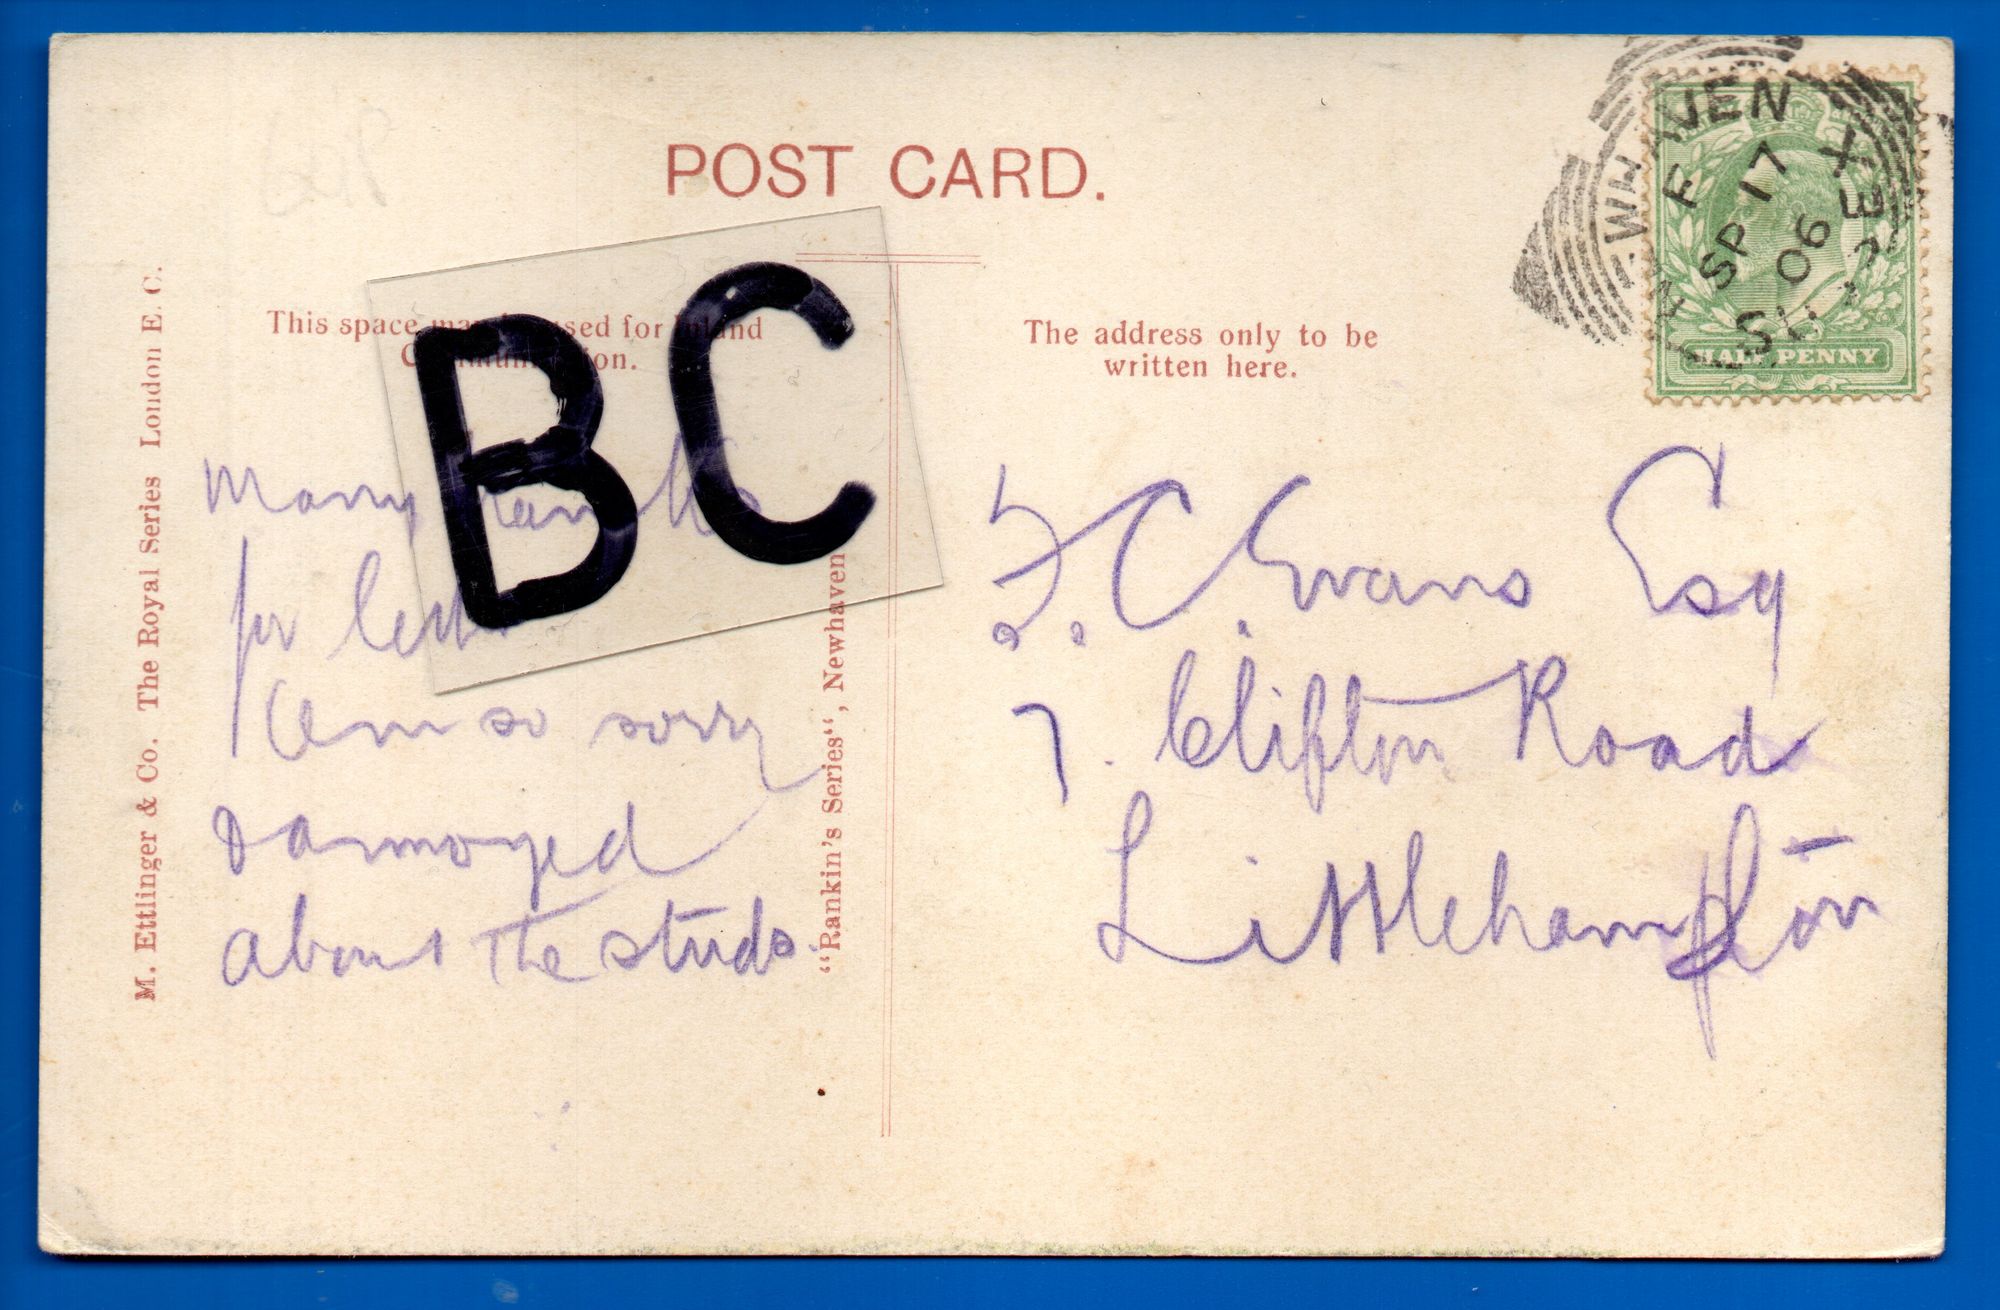 POST CARD.
This space may be used for Inland
Communication.
The address only to be
written here.
BC
M. Ettlinger & Co. The Royal Series London E. C.
"Rankin's Series", Newhaven
NEWHAVEN
F
SP 17
06
SUSSEX
HALF PENNY
Many thanks
for letter
am so sorry
annoyed
about the studs.
F. C. Evans Esq
7. Clifton Road
Littlehampton